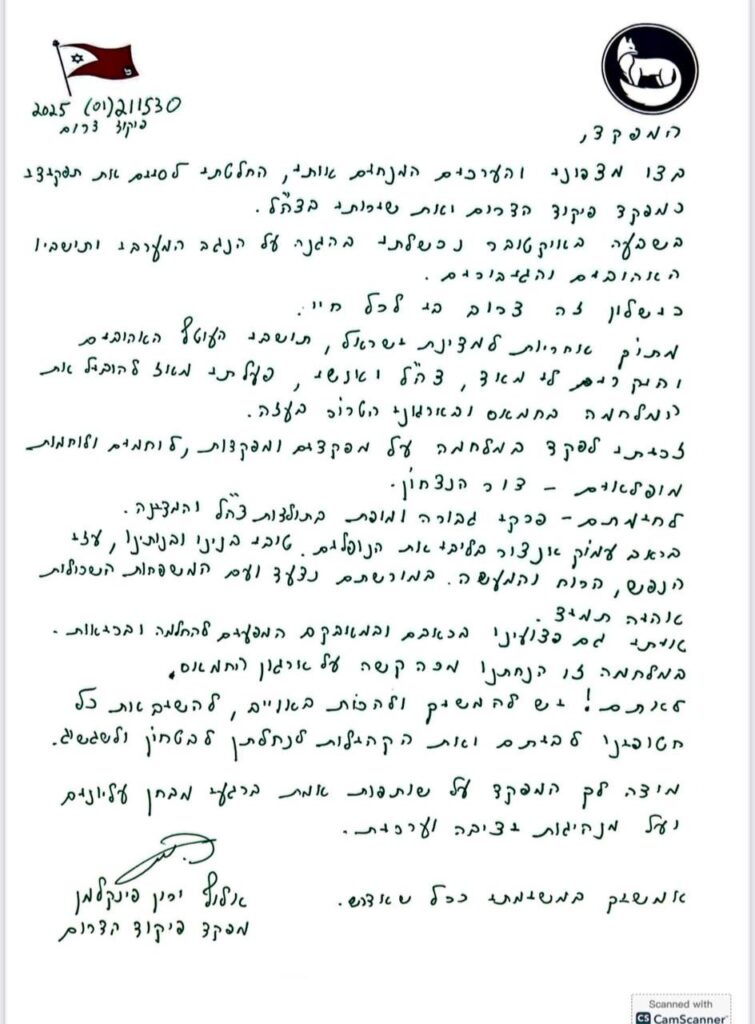 211530 (01) 2025
פיקוד דרום
המפקד,
בצו מצפוני והערכים המנחים אותי, החלטתי לסיים את תפקידי
כמפקד פיקוד הדרום ואת שירותי בצה"ל.
בשבעה באוקטובר נכשלתי בהגנה על הנגב המערבי ותושביו
האהובים והגיבורים.
כישלון זה צרוב בי לכל חיי.
מתוך אחריות למדינת ישראל, תושבי העוטף האהובים
ויקרים לי מאד, צה"ל ואנשיו, פעלתי מאז להוביל את
המלחמה בחמאס ובארגוני הטרור בעזה.
זכיתי לפקד במלחמה על מפקדים ומפקדות, לוחמים ולוחמות
מופלאים - דור הנצחון.
לחימתם - פרקי גבורה ומופת בתולדות צה"ל והמדינה.
בכאב עמוק אנצור בליבי את הנופלים. טובי בנינו ובנותינו, עזי
הנפש, הרוח והמעשה. במורשתם נצעד ועם המשפחות השכולות
אהיה תמיד.
איתי גם פצועינו בכאבם ובמאבקם המפעים להחלמה ובריאות.
במלחמה זו הנחתנו מכה קשה על ארגון החמאס.
לא תם! יש להמשיך ולהכות באוייב, להשיב את כל
חטופינו לביתם ואת הקהילות לנחלתן לבטחון ולשגשוג.
מודה לך המפקד על שותפות אמת ברגעי מבחן עליונים
ועל מנהיגות יציבה וערכית.
אמשיך במשימתי ככל שאדרש.
אלוף ירון פינקלמן
מפקד פיקוד הדרום
Scanned with
CS CamScanner